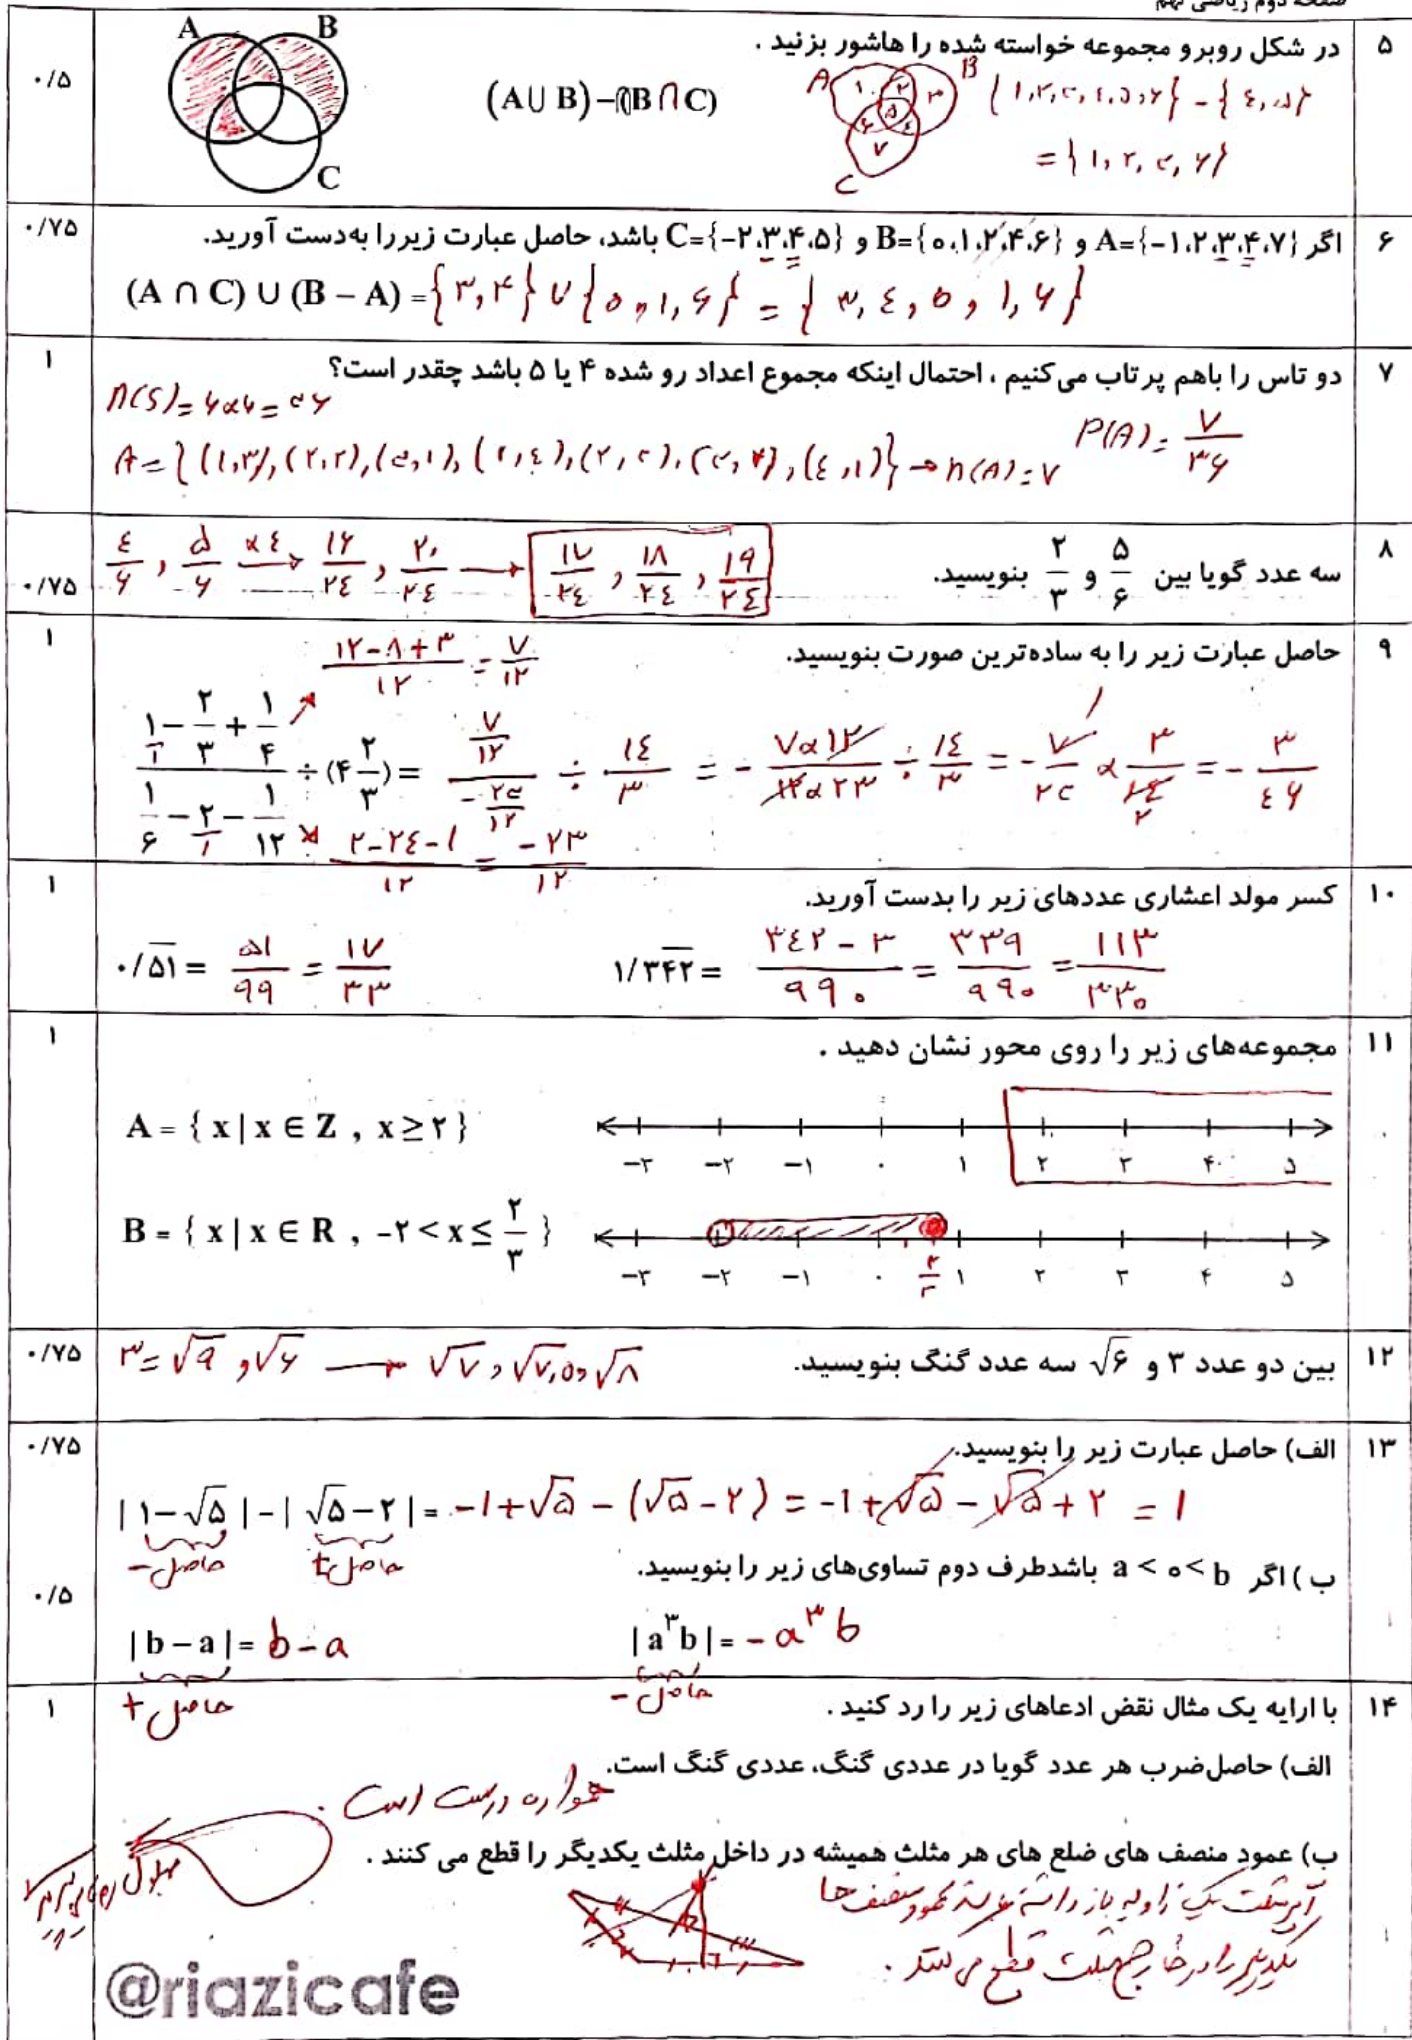 صفحه دوم ریاضی نهم
۵ در شکل روبرو مجموعه خواسته شده را هاشور بزنید . ۰/۵
A B C
(A∪B)−(B∩C)
A B C ۱ ۲ ۳ ۴ ۵ ۶ ۷
{۱,۲,۳,۴,۵,۶} − {۴,۵}
= {۱,۲,۳,۶}
۶ اگر A={−۱،۲،۳،۴،۷} و B={۰،۱،۲،۴،۶} و C={−۲،۳،۴،۵} باشد، حاصل عبارت زیررا به‌دست آورید. ۰/۷۵
(A ∩ C) ∪ (B − A) = {۳,۴} ∪ {۰,۱,۶} = {۳,۴,۰,۱,۶}
۷ دو تاس را باهم پرتاب می‌کنیم ، احتمال اینکه مجموع اعداد رو شده ۴ یا ۵ باشد چقدر است؟ ۱
n(S)=۶×۶=۳۶
A={(۱,۳),(۲,۲),(۳,۱),(۱,۴),(۲,۳),(۳,۲),(۴,۱)} → n(A)=۷ P(A)=۷/۳۶
۸ سه عدد گویا بین ۵/۶ و ۲/۳ بنویسید. ۰/۷۵
۴/۶ , ۵/۶ ×۴→ ۱۶/۲۴ , ۲۰/۲۴ → ۱۷/۲۴ , ۱۸/۲۴ , ۱۹/۲۴
۹ حاصل عبارت زیر را به ساده‌ترین صورت بنویسید. ۱
(۱۲−۸+۳)/۱۲ = ۷/۱۲
(۱/۱ − ۲/۳ + ۱/۴)/(۱/۶ − ۲/۱ − ۱/۱۲) ÷ (۴ ۲/۳) = (۷/۱۲)/(−۲۳/۱۲) ÷ ۱۴/۳ = − (۷×۱۲)/(۱۲×۲۳) ÷ ۱۴/۳ = − ۷/۲۳ × ۳/۱۴ = − ۳/۴۶
۱ ۲
(۲−۲۴−۱)/۱۲ = −۲۳/۱۲
۱۰ کسر مولد اعشاری عددهای زیر را بدست آورید. ۱
۰/۵۱ = ۵۱/۹۹ = ۱۷/۳۳
۱/۳۴۲ = (۳۴۲−۳)/۹۹۰ = ۳۳۹/۹۹۰ = ۱۱۳/۳۳۰
۱۱ مجموعه‌های زیر را روی محور نشان دهید . ۱
A = { x | x ∈ Z , x ≥ ۲ }
−۳ −۲ −۱ ۰ ۱ ۲ ۳ ۴ ۵
B = { x | x ∈ R , −۲ < x ≤ ۲/۳ }
−۳ −۲ −۱ ۰ ۲/۳ ۱ ۲ ۳ ۴ ۵
۱۲ بین دو عدد ۳ و √۶ سه عدد گنگ بنویسید. ۰/۷۵
۳=√۹ , √۶ → √۷ , √۷,۵ , √۸
۱۳ الف) حاصل عبارت زیر را بنویسید. ۰/۷۵
|۱−√۵|−|√۵−۲| = −۱+√۵ − (√۵−۲) = −۱+√۵−√۵+۲ = ۱
حاصل − حاصل +
ب) اگر a < ۰ < b باشدطرف دوم تساوی‌های زیر را بنویسید. ۰/۵
|b − a| = b − a
|a³b| = − a³ b
حاصل + حاصل −
۱۴ با ارایه یک مثال نقض ادعاهای زیر را رد کنید . ۱
الف) حاصل‌ضرب هر عدد گویا در عددی گنگ، عددی گنگ است.
همواره درست است .
ب) عمود منصف های ضلع های هر مثلث همیشه در داخل مثلث یکدیگر را قطع می کنند .
اگر مثلث یک زاویه باز داشته باشد عمود منصف ها
یکدیگر را در خارج مثلث قطع می کنند .
@riazicafe